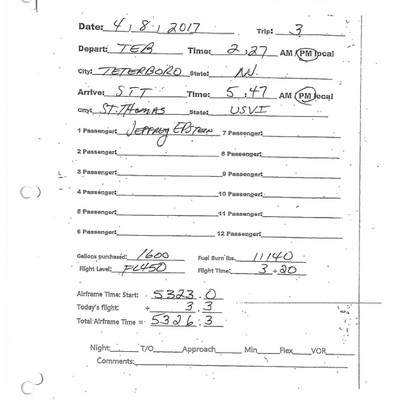 Date: 4, 8, 2017 Trip: 3
Depart: TEB Time: 2:27 AM / PM local
City: TETERBORO State: NJ
Arrive: STT Time: 5:47 AM / PM local
City: ST. THOMAS State: USVI
1 Passenger: JEFFREY EPSTEIN 7 Passenger:
2 Passenger: 8 Passenger:
3 Passenger: 9 Passenger:
4 Passenger: 10 Passenger:
5 Passenger: 11 Passenger:
6 Passenger: 12 Passenger:
Gallons purchased: 1600 Fuel Burn lbs. 11140
Flight Level: FL450 Flight Time: 3 + 20
Airframe Time: Start: 5323.0
Today's flight: + 3.3
Total Airframe Time = 5326.3
Night: T/O Approach Min Flex VOR
Comments: